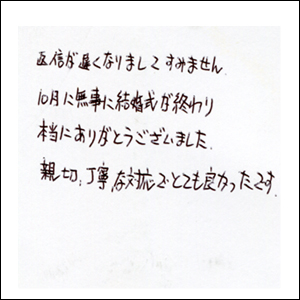 返信が遅くなりまして すみません.
10月に無事に結婚式が終わり
本当にありがとうございました.
親切、丁寧な対応でとても良かったです.